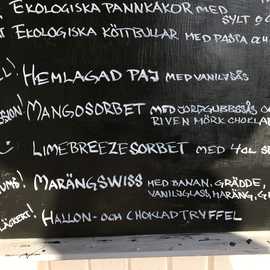 EKOLOGISKA PANNKAKOR MED
SYLT O
EKOLOGISKA KÖTTBULLAR MED PASTA OCH
HEMLAGAD PAJ MED VANILJSÅS
MANGOSORBET MED JORDGUBBSSÅS O
RIVEN MÖRK CHOKLAD
LIMEBREEZESORBET MED 4 CL
MARÄNGSWISS MED BANAN, GRÄDDE,
VANILJGLASS, MARÄNG,
LÄCKERT! HALLON- OCH CHOKLADTRYFFEL